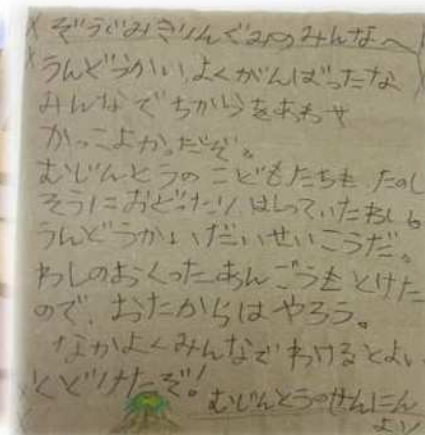 ぞうぐみきりんぐみのみんなへ
うんどうかい、よくがんばったな
みんなでちからをあわせ
かっこよかったぞ。
むじんとうのこどもたちも、たのし
そうにおどったり、はしっていたわい
うんどうかいだいせいこうだ。
わしのおくったあんごうもとけた
ので、おたからはやろう。
なかよくみんなでわけるとよい
とどけたぞ!
むじんとうのせんにん
より